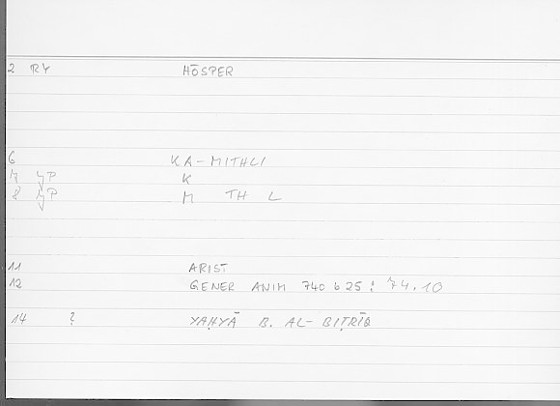 2 RY HŌSPER
6 KA-MITHLI
7 YP K
8 YP M TH L
11 ARIST
12 GENER ANIM 740 b 25 : 74.10
14 ? YAḤYĀ B. AL-BIṬRĪQ